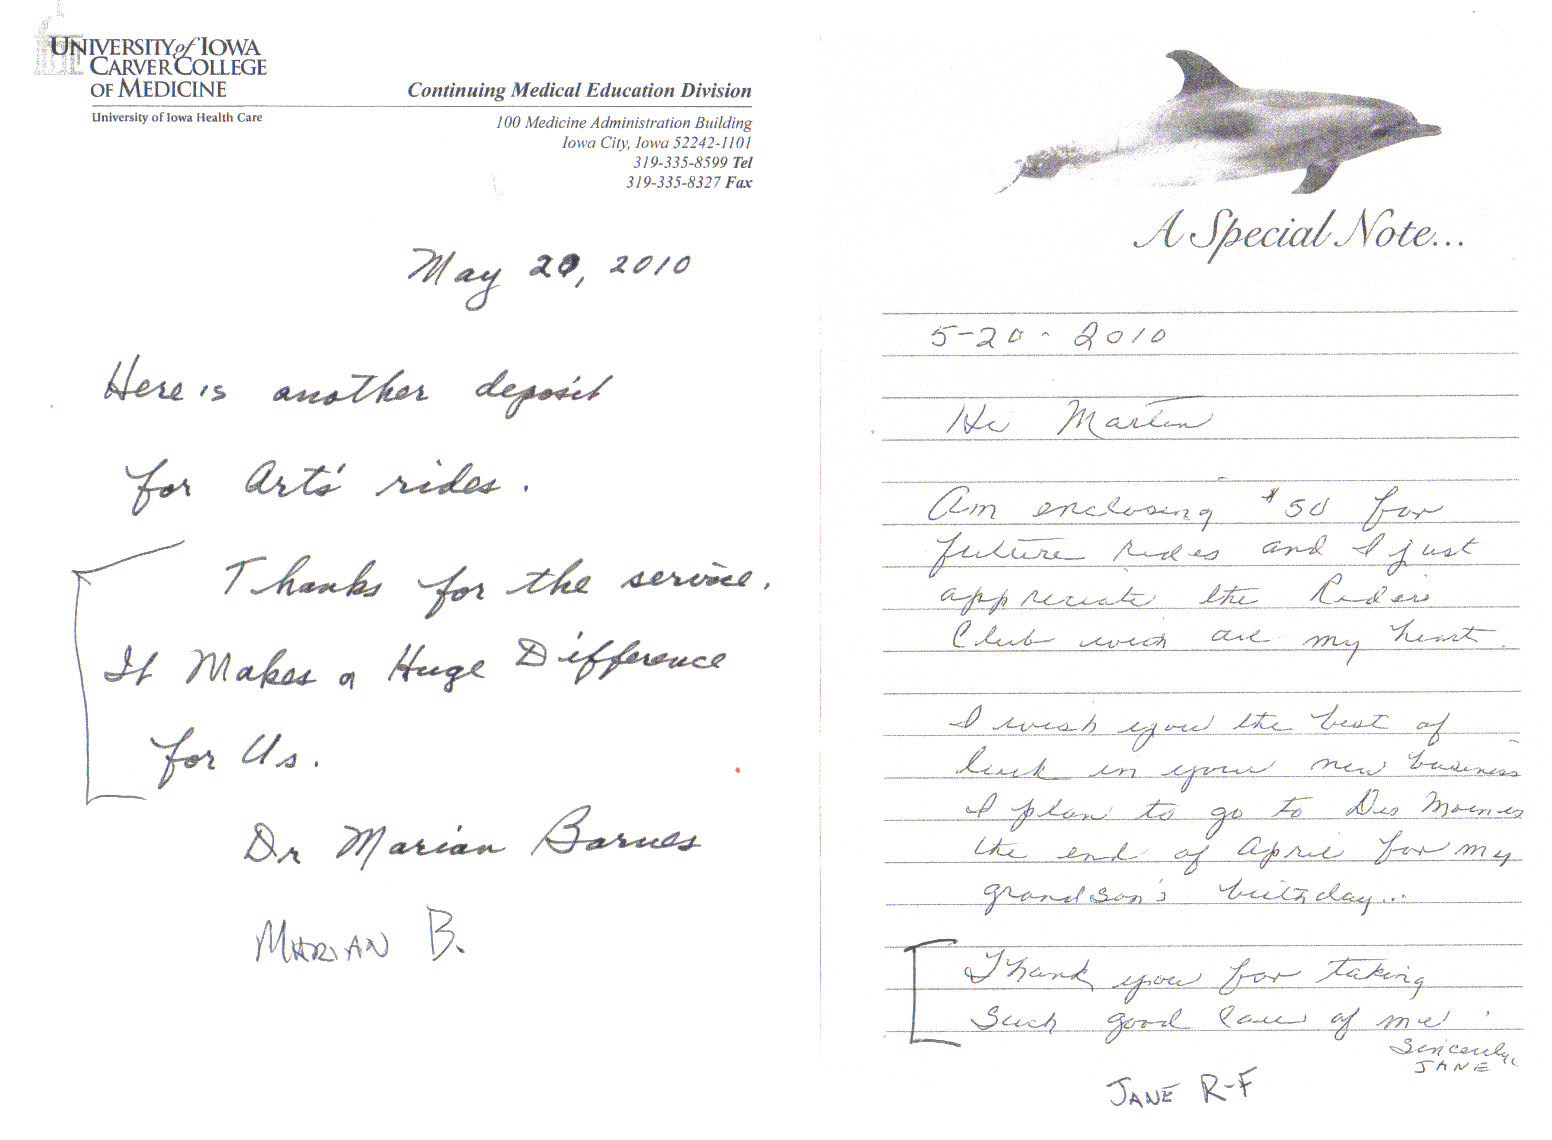 UNIVERSITY of IOWA
CARVER COLLEGE
OF MEDICINE
University of Iowa Health Care
Continuing Medical Education Division
100 Medicine Administration Building
Iowa City, Iowa 52242-1101
319-335-8599 Tel
319-335-8327 Fax
May 20, 2010
Here is another deposit
for Art's rides.
Thanks for the service.
It Makes a Huge Difference
for Us.
Dr Marian Barnes
MARIAN B.
A Special Note...
5-20-2010
Hi Martin
Am enclosing $50 for
future rides and I just
appreciate the Riders
Club with all my heart.
I wish you the best of
luck in your new business
I plan to go to Des Moines
the end of April for my
grandson's birthday...
Thank you for taking
such good care of me.
Sincerely,
JANE
JANE R-F